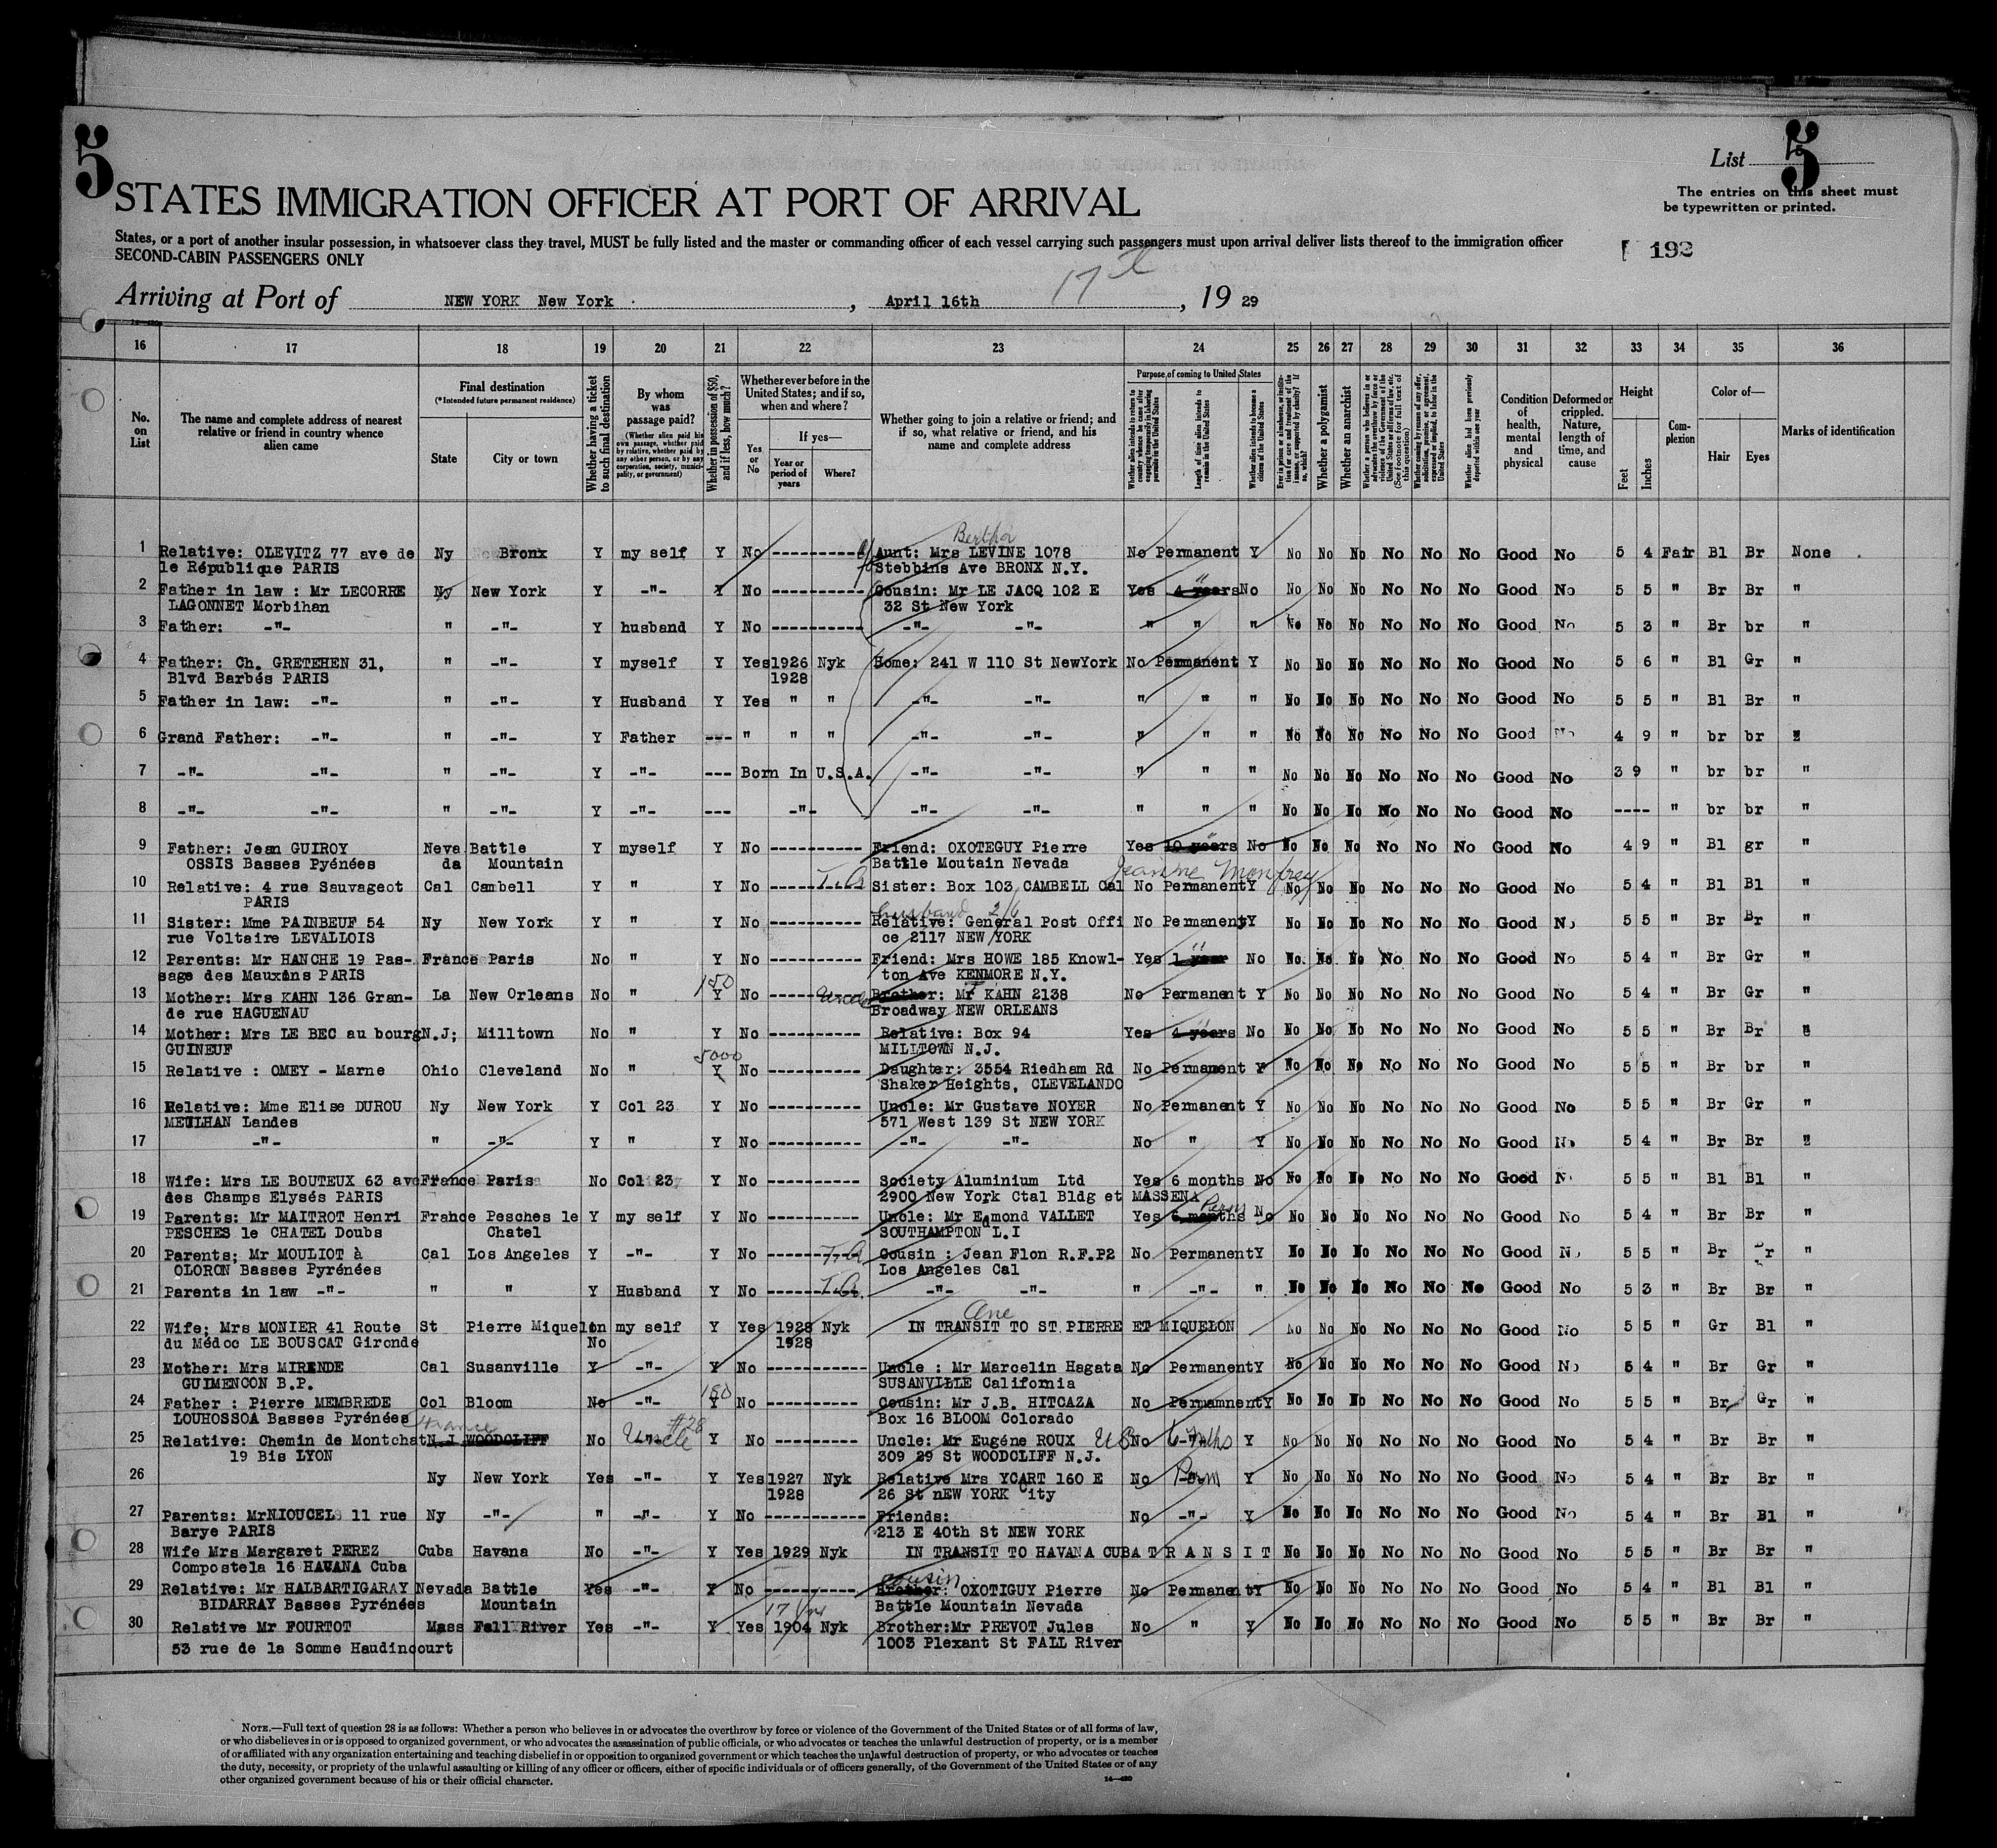 5
List 5
STATES IMMIGRATION OFFICER AT PORT OF ARRIVAL
The entries on this sheet must
be typewritten or printed.
States, or a port of another insular possession, in whatsoever class they travel, MUST be fully listed and the master or commanding officer of each vessel carrying such passengers must upon arrival deliver lists thereof to the immigration officer
SECOND-CABIN PASSENGERS ONLY
192
17
Arriving at Port of NEW YORK New York , April 16th , 19 29
16 17 18 19 20 21 22 23 24 25 26 27 28 29 30 31 32 33 34 35 36
No. on List
The name and complete address of nearest relative or friend in country whence alien came
Final destination (*Intended future permanent residence)
State City or town
Whether having a ticket to such final destination
By whom was passage paid? (Whether alien paid his own passage, whether paid by relative, whether paid by any other person, or by any corporation, society, municipality, or government)
Whether in possession of $50, and if less, how much?
Whether ever before in the United States; and if so, when and where?
Yes or No
If yes—
Year or period of years Where?
Whether going to join a relative or friend; and if so, what relative or friend, and his name and complete address
Purpose of coming to United States
Whether alien intends to return to country whence he came after engaging temporarily in laboring pursuits in the United States
Length of time alien intends to remain in the United States
Whether alien intends to become a citizen of the United States
Ever in prison or almshouse, or institution for care and treatment of the insane, or supported by charity? If so, which?
Whether a polygamist
Whether an anarchist
Whether a person who believes in or advocates the overthrow by force or violence of the Government of the United States or all forms of law, etc. (See footnote for full text of this question)
Whether coming by reason of any offer, solicitation, promise, or agreement, expressed or implied, to labor in the United States
Whether alien had been previously deported within one year
Condition of health, mental and physical
Deformed or crippled. Nature, length of time, and cause
Height
Feet Inches
Complexion
Color of—
Hair Eyes
Marks of identification
Bertha
1 Relative: OLEVITZ 77 ave de Ny Bronx Y my self Y No ---------- Aunt: Mrs LEVINE 1078 No Permanent Y No No No No No No Good No 5 4 Fair Bl Br None
le République PARIS Stebbins Ave BRONX N.Y.
2 Father in law : Mr LECORRE Ny New York Y -"- Y No ---------- Cousin: Mr LE JACQ 102 E Yes 4 years No No No No No No No Good No 5 5 " Br Br "
LAGONNET Morbihan 32 St New York
3 Father: -"- " -"- Y husband Y No ---------- -"- -"- " " " No No No No No No Good No 5 3 " Br br "
4 Father: Ch. GRETEHEN 31, " -"- Y myself Y Yes 1926 Nyk Home: 241 W 110 St NewYork No Permanent Y No No No No No No Good No 5 6 " Bl Gr "
Blvd Barbés PARIS 1928
5 Father in law: -"- " -"- Y Husband Y Yes " " -"- -"- " " " No No No No No No Good No 5 5 " Bl Br "
6 Grand Father: -"- " -"- Y Father --- " " " -"- -"- " " " No No No No No No Good No 4 9 " br br "
7 -"- -"- " -"- Y -"- --- Born In U.S.A. -"- -"- " " " No No No No No No Good No 3 9 " br br "
8 -"- -"- " -"- Y -"- --- -"- -"- -"- " " " No No No No No No Good No ---- " br br "
9 Father: Jean GUIROY Neva Battle Y myself Y No ---------- Friend: OXOTEGUY Pierre Yes 10 years No No No No No No No Good No 4 9 " Bl gr "
OSSIS Basses Pyénées da Moutain Battle Moutain Nevada
Jeanne
10 Relative: 4 rue Sauvageot Cal Cambell Y " Y No ---------- Sister: Box 103 CAMBELL Cal No Permanent Y No No No No No No Good No 5 4 " Bl Bl "
PARIS
husband
11 Sister: Mme PAINBEUF 54 Ny New York Y " Y No ---------- Relative: General Post Offi No Permanent Y No No No No No No Good No 5 5 " Br Br "
rue Voltaire LEVALLOIS ce 2117 NEW YORK
12 Parents: Mr HANCHE 19 Pas- France Paris No " Y No ---------- Friend: Mrs HOWE 185 Knowl- Yes 1 year No No No No No No No Good No 5 4 " Br Gr "
sage des Mauxins PARIS ton Ave KENMORE N.Y.
150
13 Mother: Mrs KAHN 136 Gran- La New Orleans No " Y No ---------- Uncle Brother: Mr KAHN 2138 No Permanent Y No No No No No No Good No 5 4 " Br Gr "
de rue HAGUENAU Broadway NEW ORLEANS
14 Mother: Mrs LE BEC au bourg N.J; Milltown No " Y No ---------- Relative: Box 94 Yes 4 years No No No No No No No Good No 5 5 " Br Br "
GUINEUF MILLTOWN N.J.
5000
15 Relative : OMEY - Marne Ohio Cleveland No " Y No ---------- Daughter: 3554 Riedham Rd No Permanent Y No No No No No No Good No 5 5 " Br br "
Shaker Heights, CLEVELANDO
16 Relative: Mme Elise DUROU Ny New York Y Col 23 Y No ---------- Uncle: Mr Gustave NOYER No Permanent Y No No No No No No Good No 5 5 " Br Gr "
MEULHAN Landes 571 West 139 St NEW YORK
17 -"- " -"- Y " Y No ---------- -"- -"- No " Y No No No No No No Good No 5 4 " Br Br "
18 Wife: Mrs LE BOUTEUX 63 ave France Paris No Col 23 Y No ---------- Society Aluminium Ltd Yes 6 months No No No No No No No Good 5 5 " Bl Bl "
des Champs Elysés PARIS 2900 New York Ctal Bldg et MASSENA
19 Parents: Mr MAITROT Henri France Pesches le Y my self Y No ---------- Uncle: Mr Edmond VALLET Yes 6 months No No No No No No No Good No 5 4 " Br Br "
PESCHES le CHATEL Doubs Chatel SOUTHAMPTON L.I
20 Parents; Mr MOULIOT à Cal Los Angeles Y -"- Y No ---------- Cousin : Jean Flon R.F.P2 No Permanent Y No No No No No No Good No 5 5 " Br Br "
OLORON Basses Pyrénées Los Angeles Cal
21 Parents in law -"- " " Y Husband Y No ---------- -"- -"- " -"- " No No No No No No Good No 5 3 " Br Br "
22 Wife; Mrs MONIER 41 Route St Pierre Miquelon my self Y Yes 1928 Nyk IN TRANSIT TO ST PIERRE ET MIQUELON No No No No No No Good No 5 5 " Gr Bl "
du Médoc LE BOUSCAT Gironde No 1928
23 Mother: Mrs MIRENDE Cal Susanville Y -"- Y No ----------- Uncle : Mr Marcelin Hagata No Permanent Y No No No No No No Good No 5 4 " Br Gr "
GUIMENCON B.P. SUSANVILLE California
150
24 Father : Pierre MEMBREDE Col Bloom No -"- Y No ---------- Cousin: Mr J.B. HITCAZA No Permamnent Y No No No No No No Good No 5 5 " Br Gr "
LOUHOSSOA Basses Pyrénées Box 16 BLOOM Colorado
France
25 Relative: Chemin de Montchat N.J WOODCLIFF No Uncle Y No --------- Uncle: Mr Eugéne ROUX No 6 mths Y No No No No No No Good No 5 4 " Br Br "
19 Bis LYON 309 29 St WOODCLIFF N.J.
26 Ny New York Yes -"- Y Yes 1927 Nyk Relative Mrs YCART 160 E No Perm Y No No No No No No Good No 5 4 " Br Br "
1928 26 St nEW YORK City
27 Parents: MrNIOUCEL 11 rue Ny -"- " -"- Y No ----------- Friends: No -"- Y No No No No No No Good No 5 4 " Br Bl "
Barye PARIS 213 E 40th St NEW YORK
28 Wife Mrs Margaret PEREZ Cuba Havana No -"- Y Yes 1929 Nyk IN TRANSIT TO HAVANA CUBA T R A N S I T No No No No No No Good No 5 5 " Br Br "
Compostela 16 HAVANA Cuba
cousin
29 Relative: Mr HALBARTIGARAY Nevada Battle Yes -"- Y No ---------- Brother: OXOTIGUY Pierre No Permanent Y No No No No No No Good No 5 4 " Bl Bl "
BIDARRAY Basses Pyrénées Mountain Battle Mountain Nevada
30 Relative Mr FOURTOT Mass Fall River Yes -"- Y Yes 1904 Nyk Brother:Mr PREVOT Jules No " Y No No No No No No Good No 5 5 " Br Br "
53 rue de la Somme Haudincourt 1003 Plexant St FALL River
NOTE.—Full text of question 28 is as follows: Whether a person who believes in or advocates the overthrow by force or violence of the Government of the United States or of all forms of law,
or who disbelieves in or is opposed to organized government, or who advocates the assassination of public officials, or who advocates or teaches the unlawful destruction of property, or is a member
of or affiliated with any organization entertaining and teaching disbelief in or opposition to organized government or which teaches the unlawful destruction of property, or who advocates or teaches
the duty, necessity, or propriety of the unlawful assaulting or killing of any officer or officers, either of specific individuals or of officers generally, of the Government of the United States or of any
other organized government because of his or their official character.
14—430